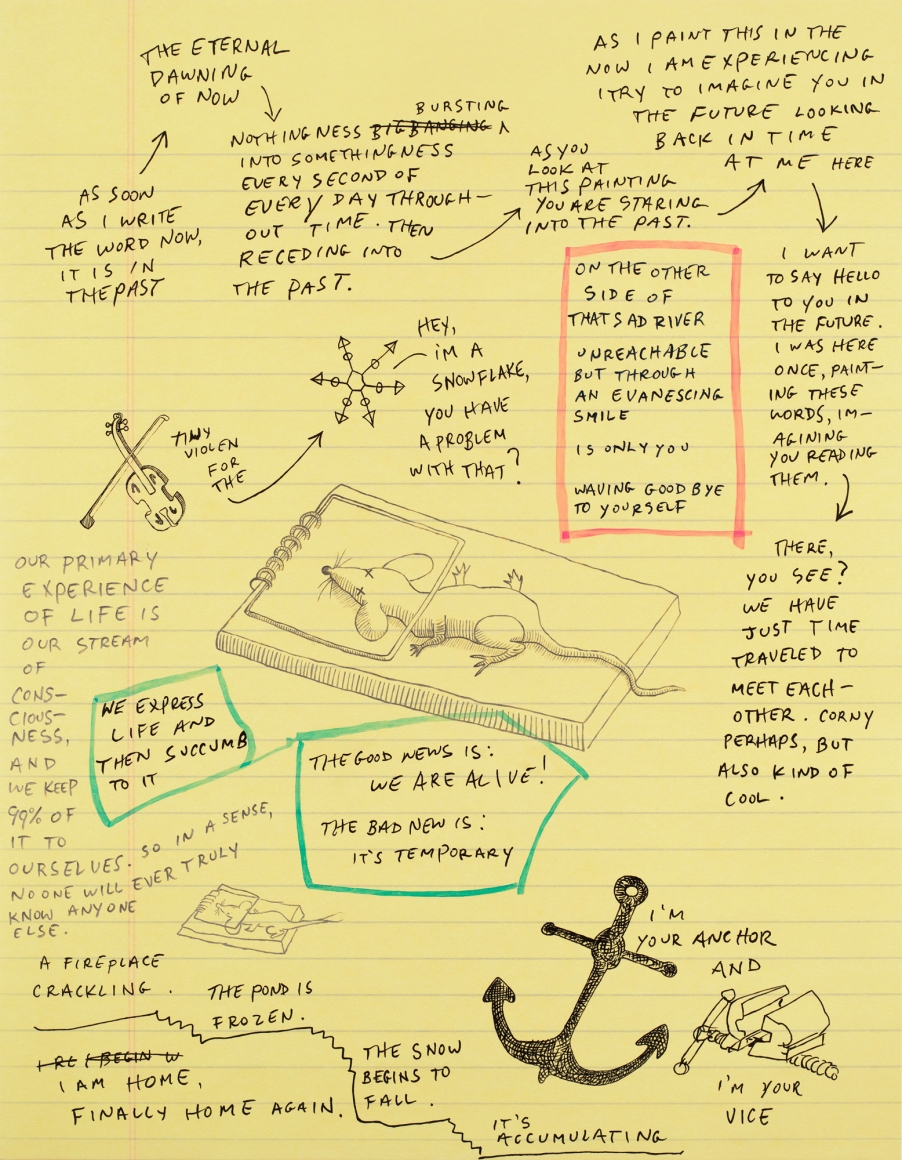 AS SOON
AS I WRITE
THE WORD NOW,
IT IS IN
THE PAST
THE ETERNAL
DAWNING
OF NOW
BURSTING
NOTHINGNESS BIG BANGING ∧
INTO SOMETHINGNESS
EVERY SECOND OF
EVERY DAY THROUGH-
OUT TIME. THEN
RECEDING INTO
THE PAST.
AS YOU
LOOK AT
THIS PAINTING
YOU ARE STARING
INTO THE PAST.
AS I PAINT THIS IN THE
NOW I AM EXPERIENCING
I TRY TO IMAGINE YOU IN
THE FUTURE LOOKING
BACK IN TIME
AT ME HERE
I WANT
TO SAY HELLO
TO YOU IN
THE FUTURE.
I WAS HERE
ONCE, PAINT-
ING THESE
WORDS, IM-
AGINING
YOU READING
THEM.
THERE,
YOU SEE?
WE HAVE
JUST TIME
TRAVELED TO
MEET EACH-
OTHER. CORNY
PERHAPS, BUT
ALSO KIND OF
COOL.
ON THE OTHER
SIDE OF
THAT SAD RIVER
UNREACHABLE
BUT THROUGH
AN EVANESCING
SMILE
IS ONLY YOU
WAVING GOOD BYE
TO YOURSELF
TINY
VIOLEN
FOR
THE
HEY,
I'M A
SNOWFLAKE,
YOU HAVE
A PROBLEM
WITH THAT?
OUR PRIMARY
EXPERIENCE
OF LIFE IS
OUR STREAM
OF
CONS-
CIOUS-
NESS,
AND
WE KEEP
99% OF
IT TO
OURSELVES. SO IN A SENSE,
NO ONE WILL EVER TRULY
KNOW ANYONE
ELSE.
WE EXPRESS
LIFE AND
THEN SUCCUMB
TO IT
THE GOOD NEWS IS:
WE ARE ALIVE!
THE BAD NEW IS:
IT'S TEMPORARY
I'M
YOUR ANCHOR
AND
I'M YOUR
VICE
A FIREPLACE
CRACKLING.
THE POND IS
FROZEN.
I BEGIN W
I AM HOME,
FINALLY HOME AGAIN.
THE SNOW
BEGINS TO
FALL.
IT'S
ACCUMULATING